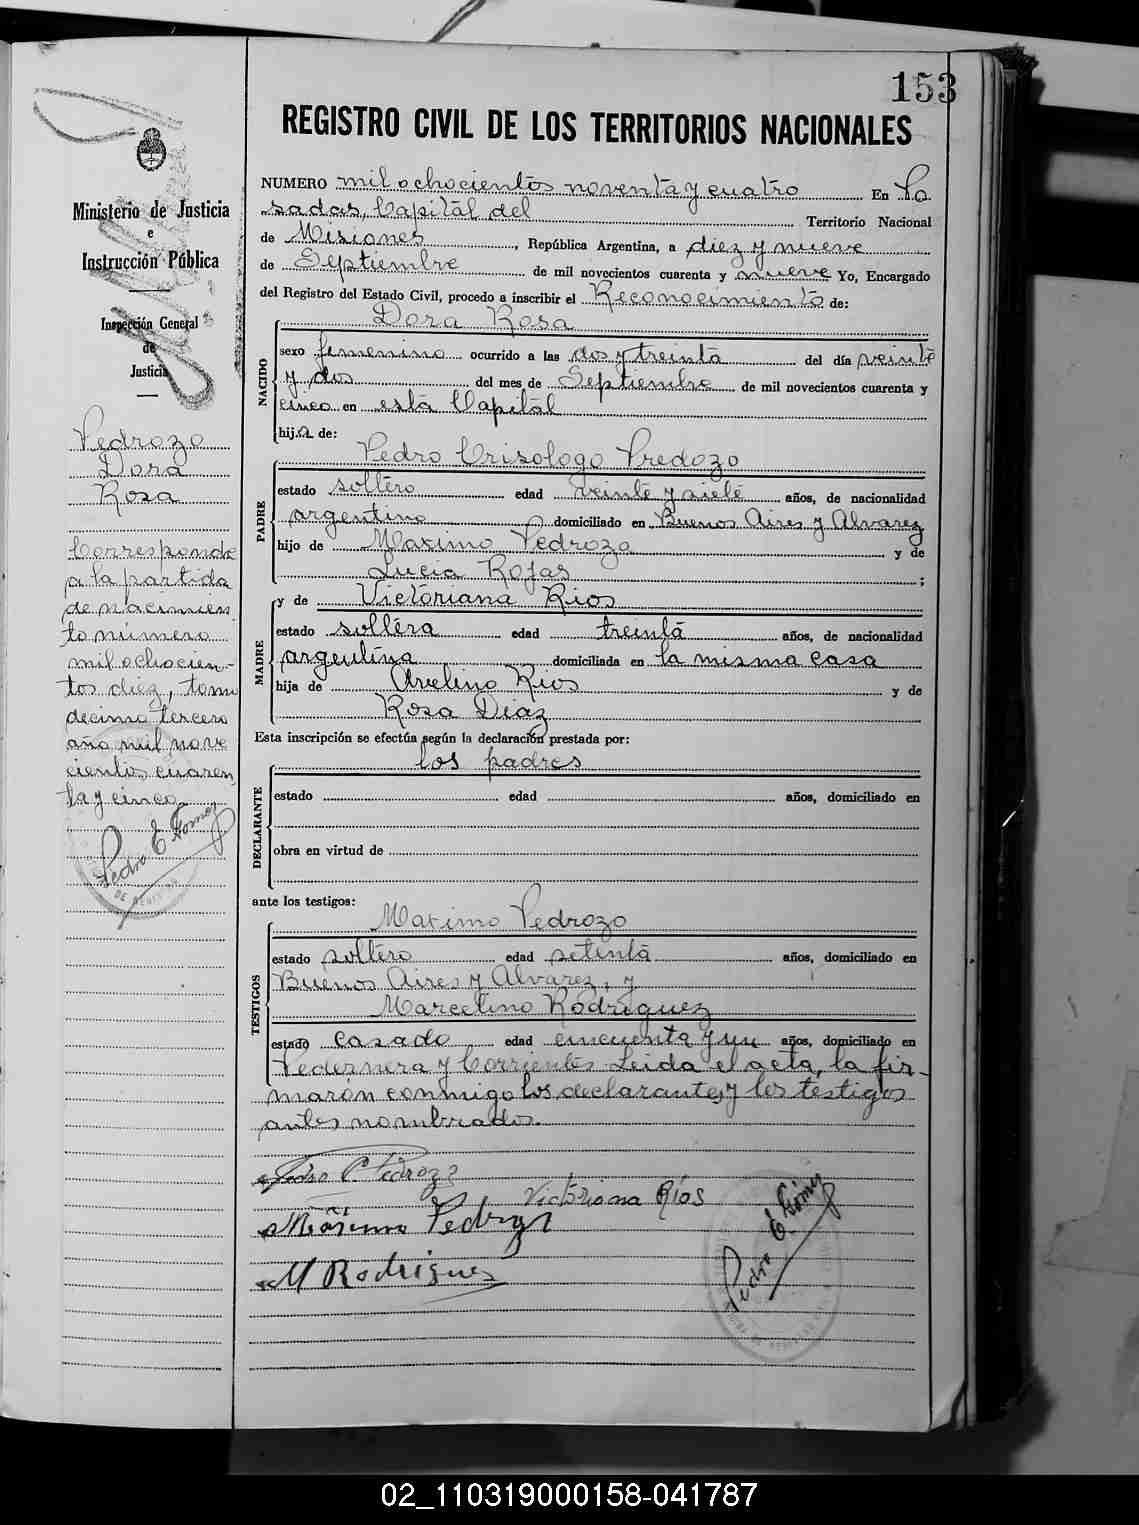 153
REGISTRO CIVIL DE LOS TERRITORIOS NACIONALES
Ministerio de Justicia
e
Instrucción Pública
Inspección General
de
Justicia
Pedrozo
Dora
Rosa
Corresponde
a la partida
de nacimien
to número
mil ochocien-
tos diez, tomo
decimo tercero
año mil nove
cientos cuaren
ta y cinco
Pedro E Gómez
NUMERO mil ochocientos noventa y cuatro En Po
sadas, Capital del Territorio Nacional
de Misiones, República Argentina, a diez y nueve
de Septiembre de mil novecientos cuarenta y nueve Yo, Encargado
del Registro del Estado Civil, procedo a inscribir el Reconocimiento de:
Dora Rosa
NACIDO
sexo femenino ocurrido a las dos y treinta del día veinte
y dos del mes de Septiembre de mil novecientos cuarenta y
cinco en esta Capital
hija de:
Pedro Crisologo Predozo
PADRE
estado soltero edad veinte y siete años, de nacionalidad
argentino domiciliado en Buenos Aires y Alvarez
hijo de Maximo Pedrozo y de
Lucia Rojas ;
y de Victoriana Rios
MADRE
estado soltera edad treinta años, de nacionalidad
argentina domiciliada en la misma casa
hija de Avelino Rios y de
Rosa Diaz
Esta inscripción se efectúa según la declaración prestada por:
los padres
DECLARANTE
estado edad años, domiciliado en
obra en virtud de
ante los testigos:
Maximo Pedrozo
TESTIGOS
estado soltero edad setenta años, domiciliado en
Buenos Aires y Alvarez, y
Marcelino Rodriguez
estado casado edad cincuenta y un años, domiciliado en
Pedernera y Corrientes Leida el acta, la fir-
marón conmigo los declarantes y los testigos
antes nombrados.
Pedro C. Pedrozo
Victoriana Ríos
Máximo Pedrozo
M Rodriguez
Pedro E. Gómez
02_110319000158-041787